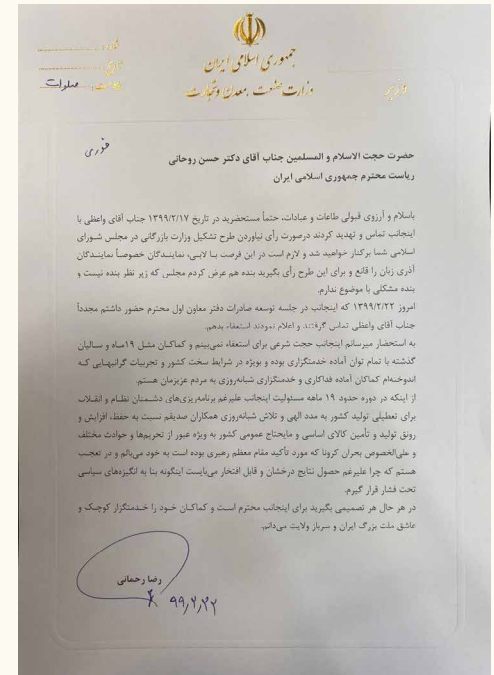 جمهوری اسلامی ایران
وزارت صنعت، معدن و تجارت
وزیر
شماره:
تاریخ:
پیوست: صلوات
فوری
حضرت حجت الاسلام و المسلمین جناب آقای دکتر حسن روحانی
ریاست محترم جمهوری اسلامی ایران
باسلام و آرزوی قبولی طاعات و عبادات، حتماً مستحضرید در تاریخ ۱۳۹۹/۲/۱۷ جناب آقای واعظی با
اینجانب تماس و تهدید کردند درصورت رأی نیاوردن طرح تشکیل وزارت بازرگانی در مجلس شورای
اسلامی شما برکنار خواهید شد و لازم است در این فرصت با لابی، نمایندگان خصوصاً نمایندگان
آذری زبان را قانع و برای این طرح رأی بگیرید بنده هم عرض کردم مجلس که زیر نظر بنده نیست و
بنده مشکلی با موضوع ندارم.
امروز ۱۳۹۹/۲/۲۲ که اینجانب در جلسه توسعه صادرات دفتر معاون اول محترم حضور داشتم مجدداً
جناب آقای واعظی تماس گرفتند و اعلام نمودند استعفاء بدهم.
به استحضار میرسانم اینجانب حجت شرعی برای استعفاء نمی‌بینم و کماکان مثل ۱۹ماه و سالیان
گذشته با تمام توان آماده خدمتگزاری بوده و بویژه در شرایط سخت کشور و تجربیات گرانبهایی که
اندوخته‌ام کماکان آماده فداکاری و خدمتگزاری شبانه‌روزی به مردم عزیزمان هستم.
از اینکه در دوره حدود ۱۹ ماهه مسئولیت اینجانب علیرغم برنامه‌ریزی‌های دشمنان نظام و انقلاب
برای تعطیلی تولید کشور به مدد الهی و تلاش شبانه‌روزی همکاران صدیقم نسبت به حفظ، افزایش و
رونق تولید و تأمین کالای اساسی و مایحتاج عمومی کشور به ویژه عبور از تحریم‌ها و حوادث مختلف
و علی‌الخصوص بحران کرونا که مورد تأکید مقام معظم رهبری بوده است به خود می‌بالم و در تعجب
هستم که چرا علیرغم حصول نتایج درخشان و قابل افتخار می‌بایست اینگونه بنا به انگیزه‌های سیاسی
تحت فشار قرار گیرم.
در هر حال هر تصمیمی بگیرید برای اینجانب محترم است و کماکان خود را خدمتگزار کوچک و
عاشق ملت بزرگ ایران و سرباز ولایت می‌دانم.
رضا رحمانی
۹۹,۲,۲۲